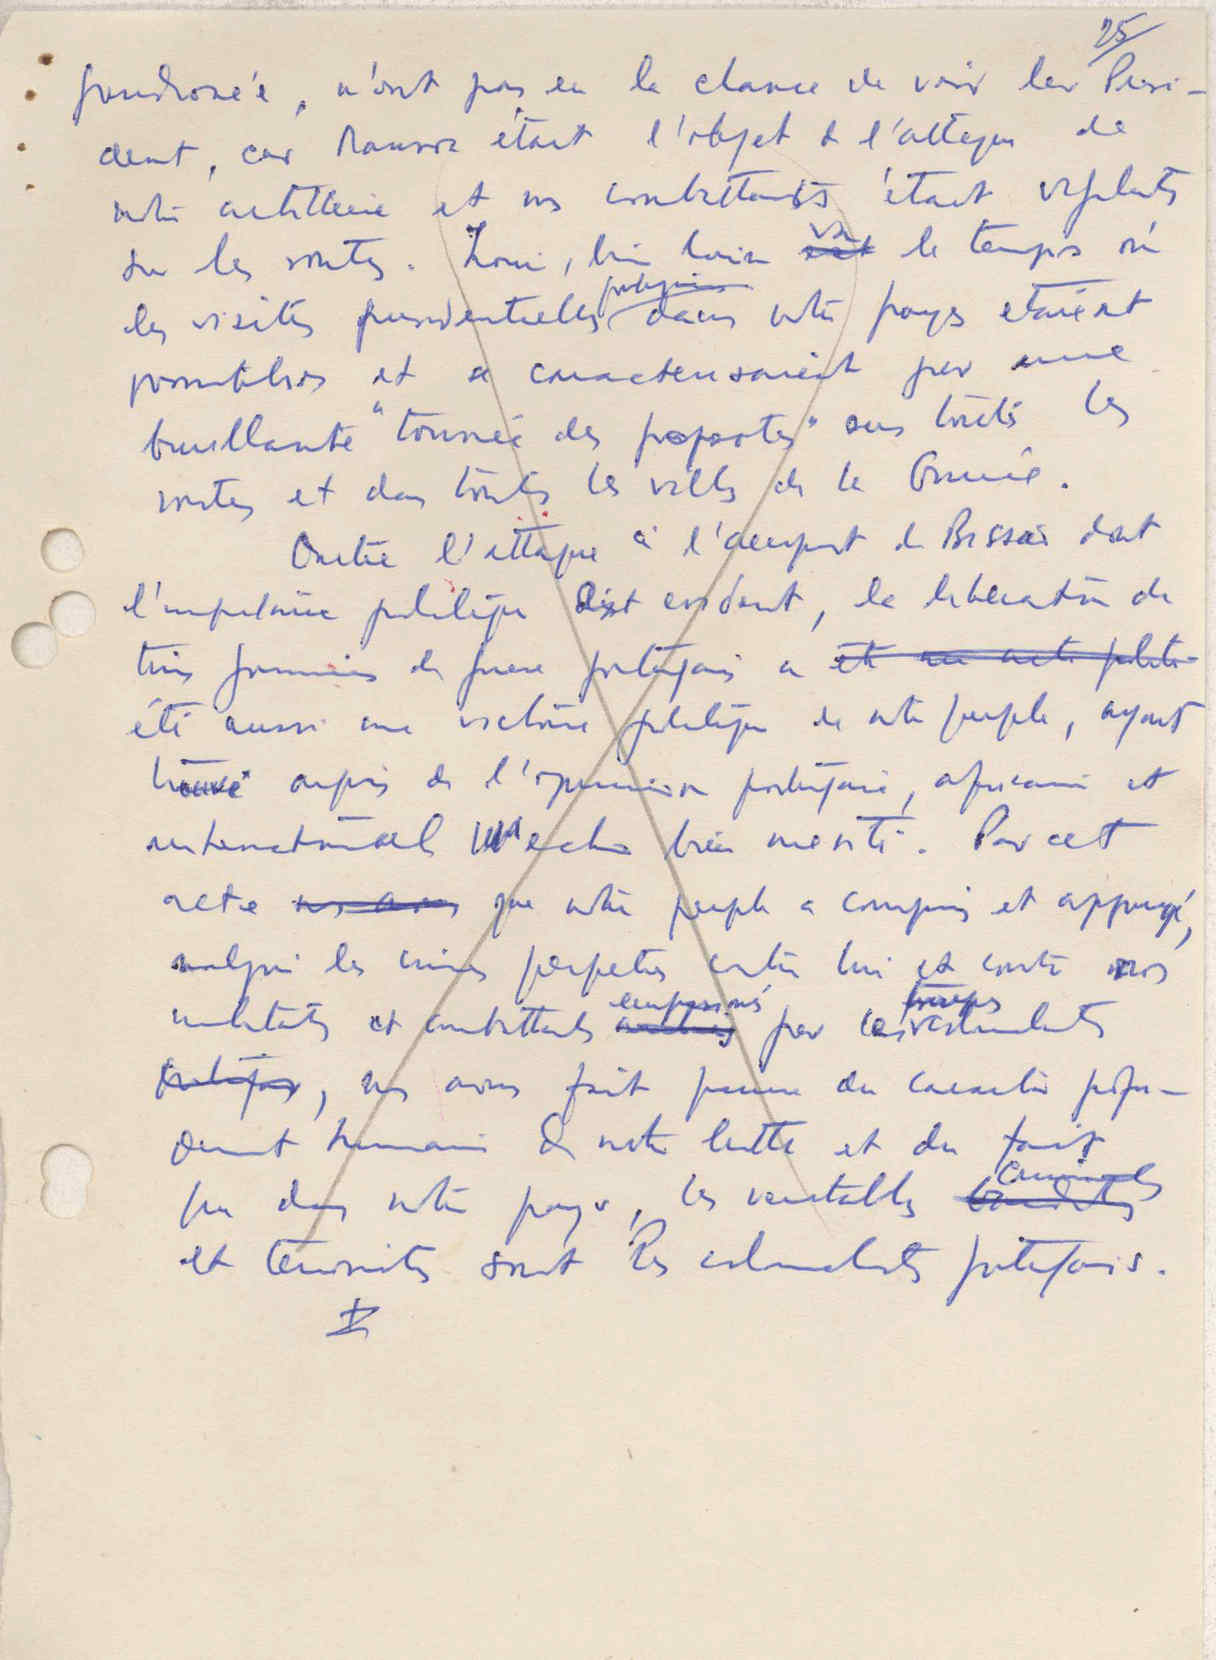 25/
goudronée, n'ont pas eu la chance de voir leur Prési-
dent, car Mansoa était l'objet de l'attaque de
notre artillerie et nos combattants étaient vigilants
sur les routes. Loin, bien loin va
est le temps où
portugaises
les visites présidentielles dans notre pays étaient
possibles et se caractérisaient par une
brillante "tournée des popotes" sur toutes les
routes et dans toutes les villes de la Guinée.
Outre l'attaque à l'aéroport de Bissao dont
l'importance politique est evident, la libération de
trois prisonniers de guerre portugais a été un acte politi-
été aussi une victoire politique de notre peuple, ayant
trouvé auprès de l'opinion portugaise, africaine et
international un echo bien merité. Par cet
acte nous avons que notre peuple a compris et appuyé,
malgré les crimes perpetrés contre lui et contre nos
emprisonnés troupes
militants et combattants par les colonialistes
portugais, nous avons fait preuve du caractère profon-
dement humain de notre lutte et du fait
criminels
que dans notre pays, les veritables bandits
et terroristes sont les colonialistes portugais.